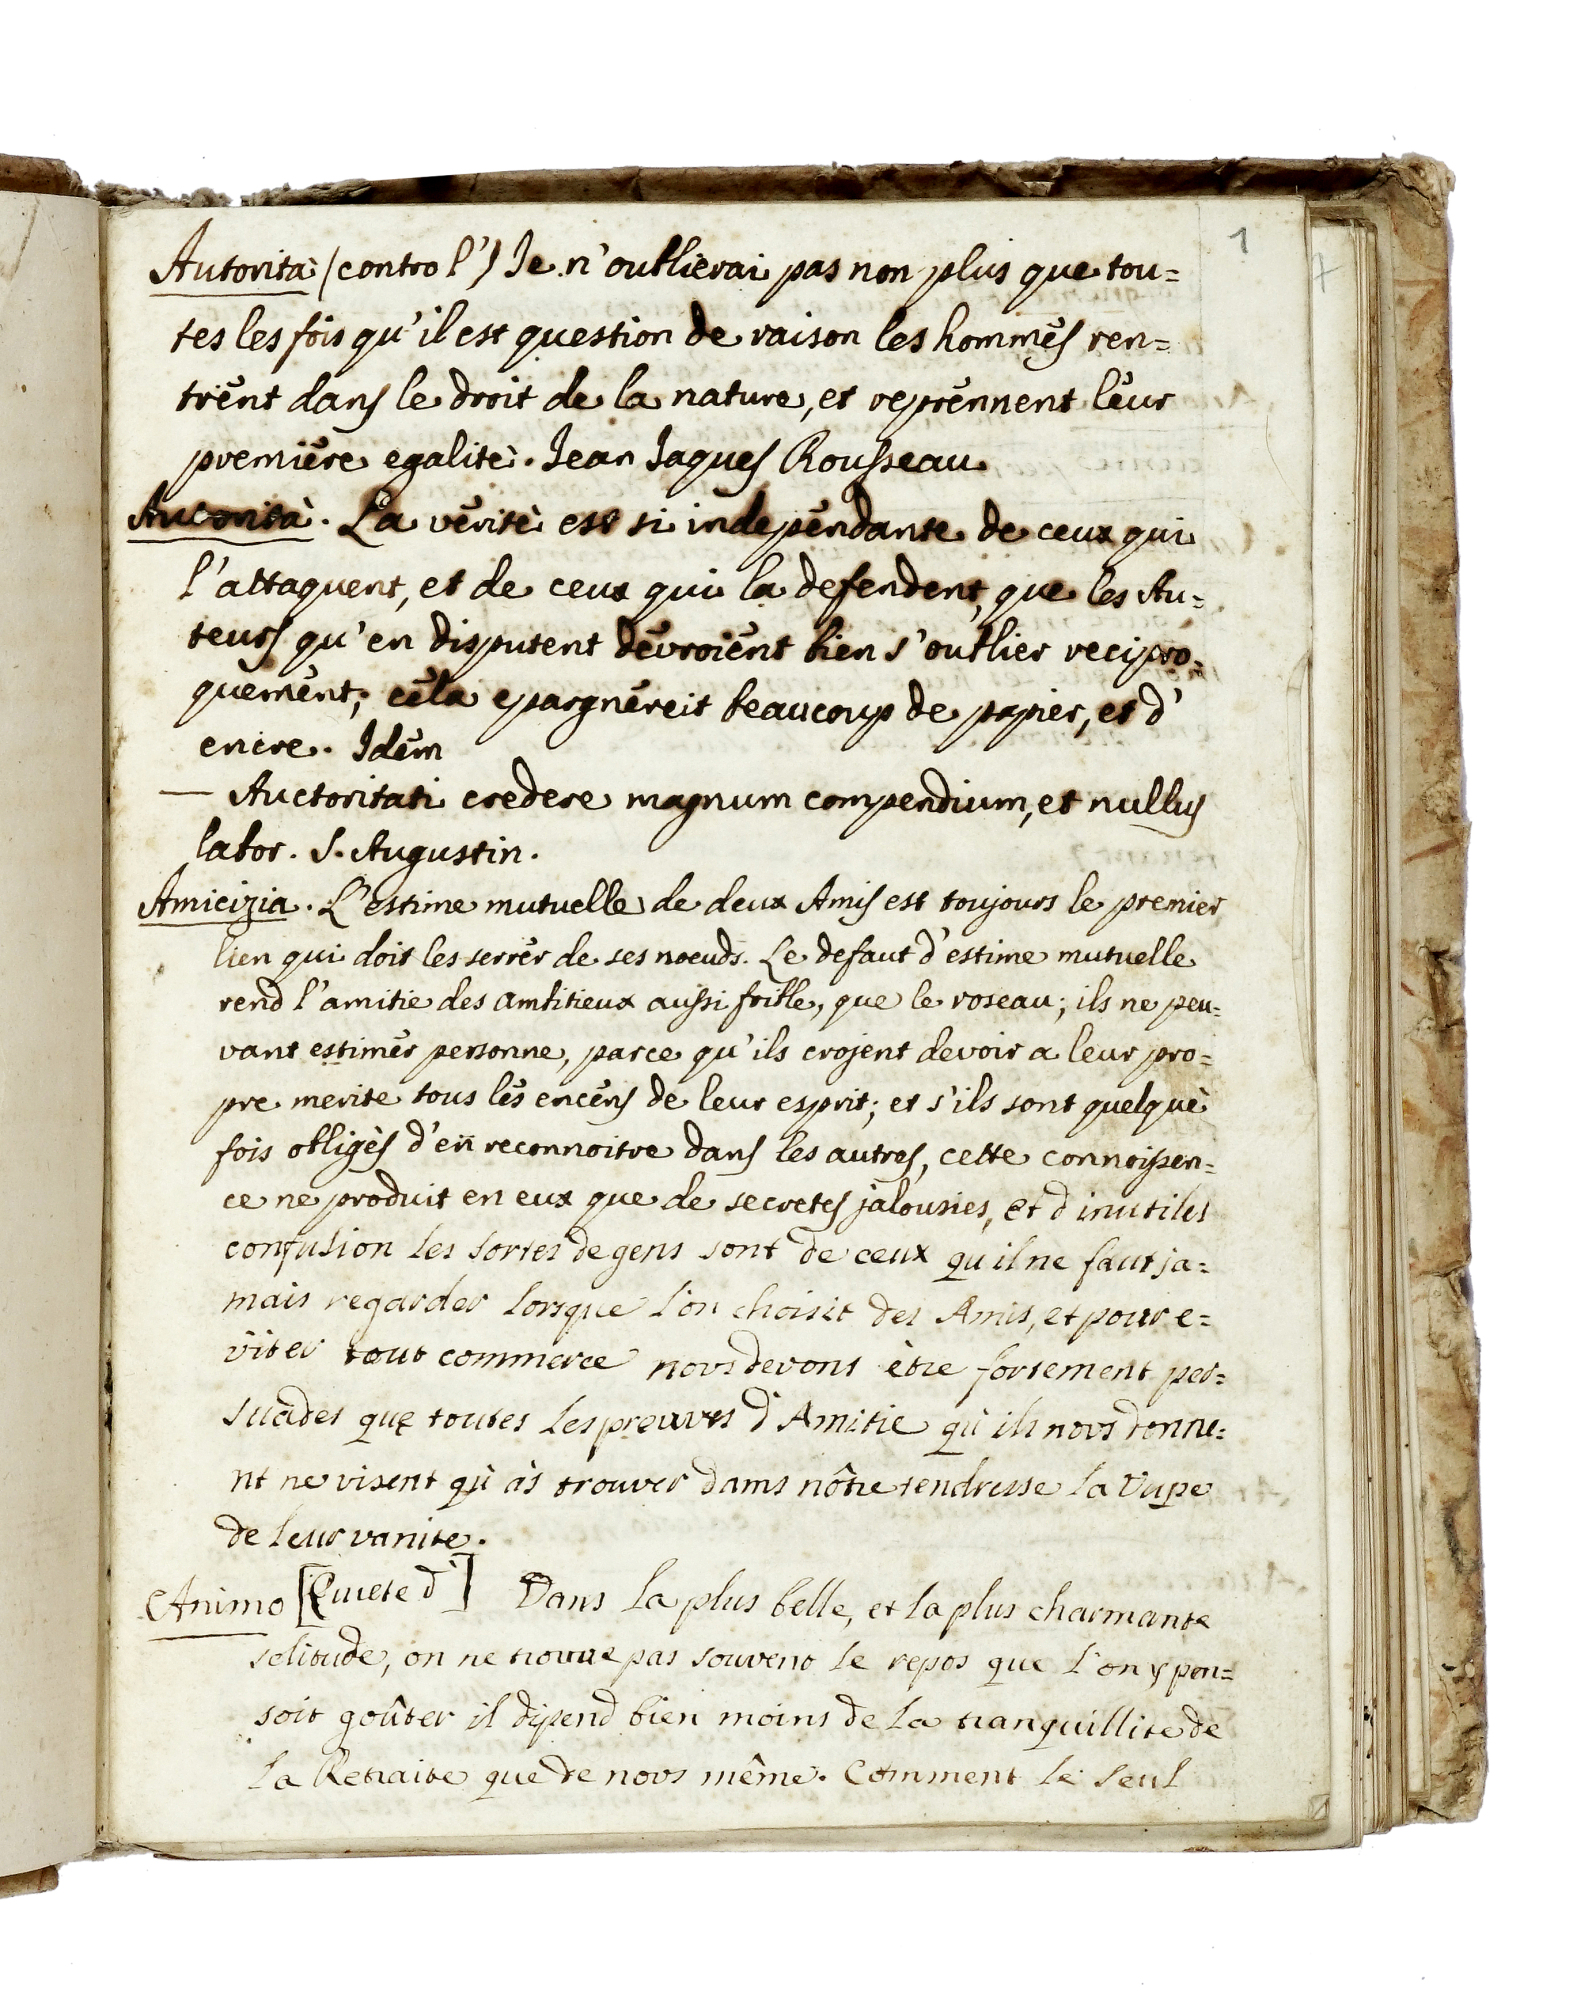 1
7
Autorità (contro l') Je n'oublierai pas non plus que tou=
tes les fois qu'il est question de raison les hommes ren=
trënt dans le droit de la nature, et reprënnent lëur
première egalitè. Jean Jaques Rousseau
Autorità. La vëritè est si indepëndante de ceux qui
l'attaquent, et de ceux qui la defendent, que les Au=
teurs qu'en disputent dëvroiënt bien s'oublier recipro=
quemënt; cëla epargnëreit beaucoup de papier, et d'
encre. Idëm
— Auctoritati credere magnum compendium, et nullus
labor. S. Augustin.
Amicizia. L'estime mutuelle de deux Amis est toujours le premier
lien qui doit les serrër de ses noeuds. Le defaut d'estime mutuelle
rend l'amitie des ambitieux aussi foible, que le roseau; ils ne peu=
vant estimër personne, parce qu'ils crojent devoir a leur pro=
pre merite tous lës encëns de leur esprit; et s'ils sont quelquè
fois obligès d'en reconnoitre dans les autres, cette connoissen=
ce ne produit en eux que de secretes jalousies, et d inutiles
confusion les sortes de gens sont de ceux qu il ne faut ja=
mais regarder lorsque l'on choisit des Amis, et pour e=
viter tout commerce nous devons être fortement per=
suades que toutes les preuves d'Amitie qu'ils nous donne=
nt ne visent qu' às trouver dams nôtre tendresse la Dupe
de leur vanite.
Animo [Quiete d'] Dans la plus belle, et la plus charmante
solitude, on ne trouve pas souvent le repos que l'on y pen=
soit goûter il dipend bien moins de la tranquillite de
la Retraite que de nous même. Comment le seul